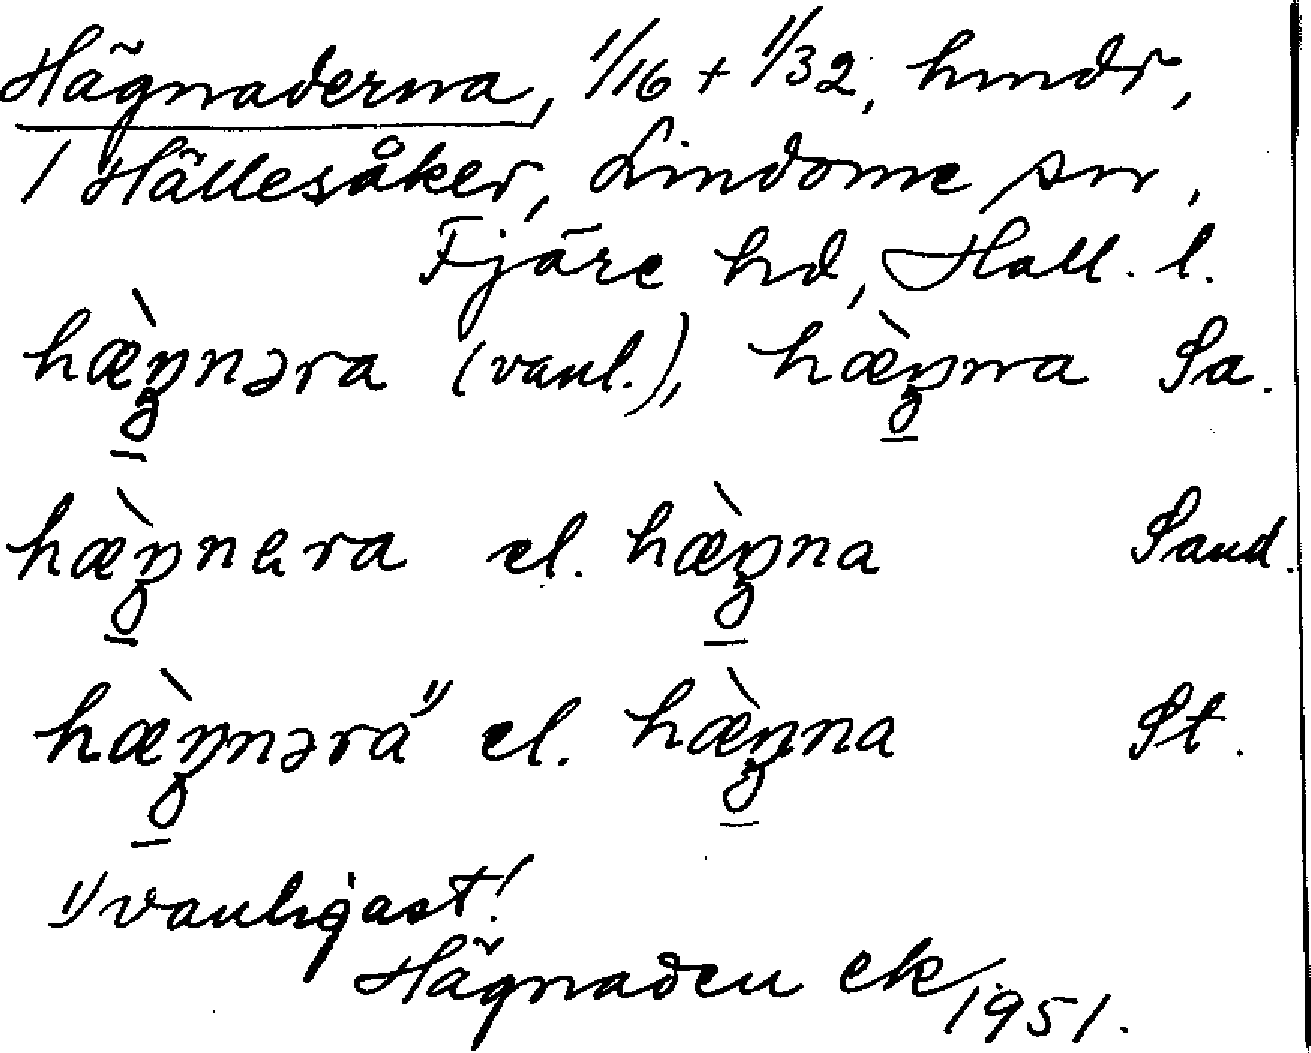 Hägnaderna, 1/16 + 1/32, hmdr,
1 Hällesåker, Lindome sn,
Fjäre hd, Hall. l.
hæ̀ŋnəra (vanl.), hæ̀ŋnra Sa.
hæ̀ŋnera el. hæ̀ŋna Sand.
hæ̀ŋnəra¹⁾ el. hæ̀ŋna St.
¹⁾ vanligast!
Hägnaden ek 1951.